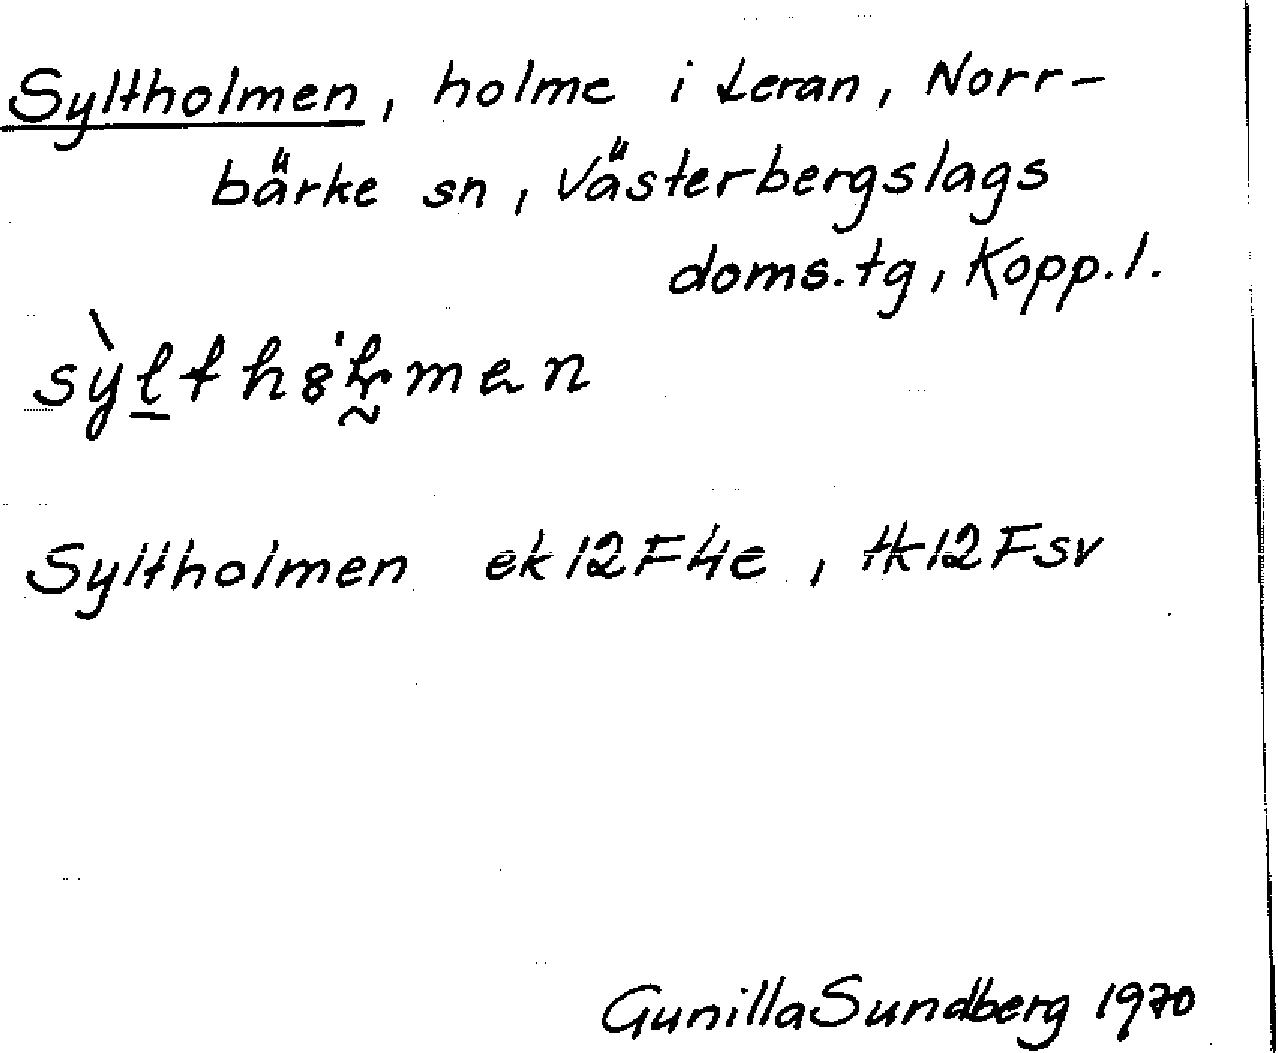 Syltholmen, holme i Leran, Norr-
bärke sn, Västerbergslags
doms.tg, Kopp.l.
Syltholmen ek12F4e, tk12Fsv
Gunilla Sundberg 1970